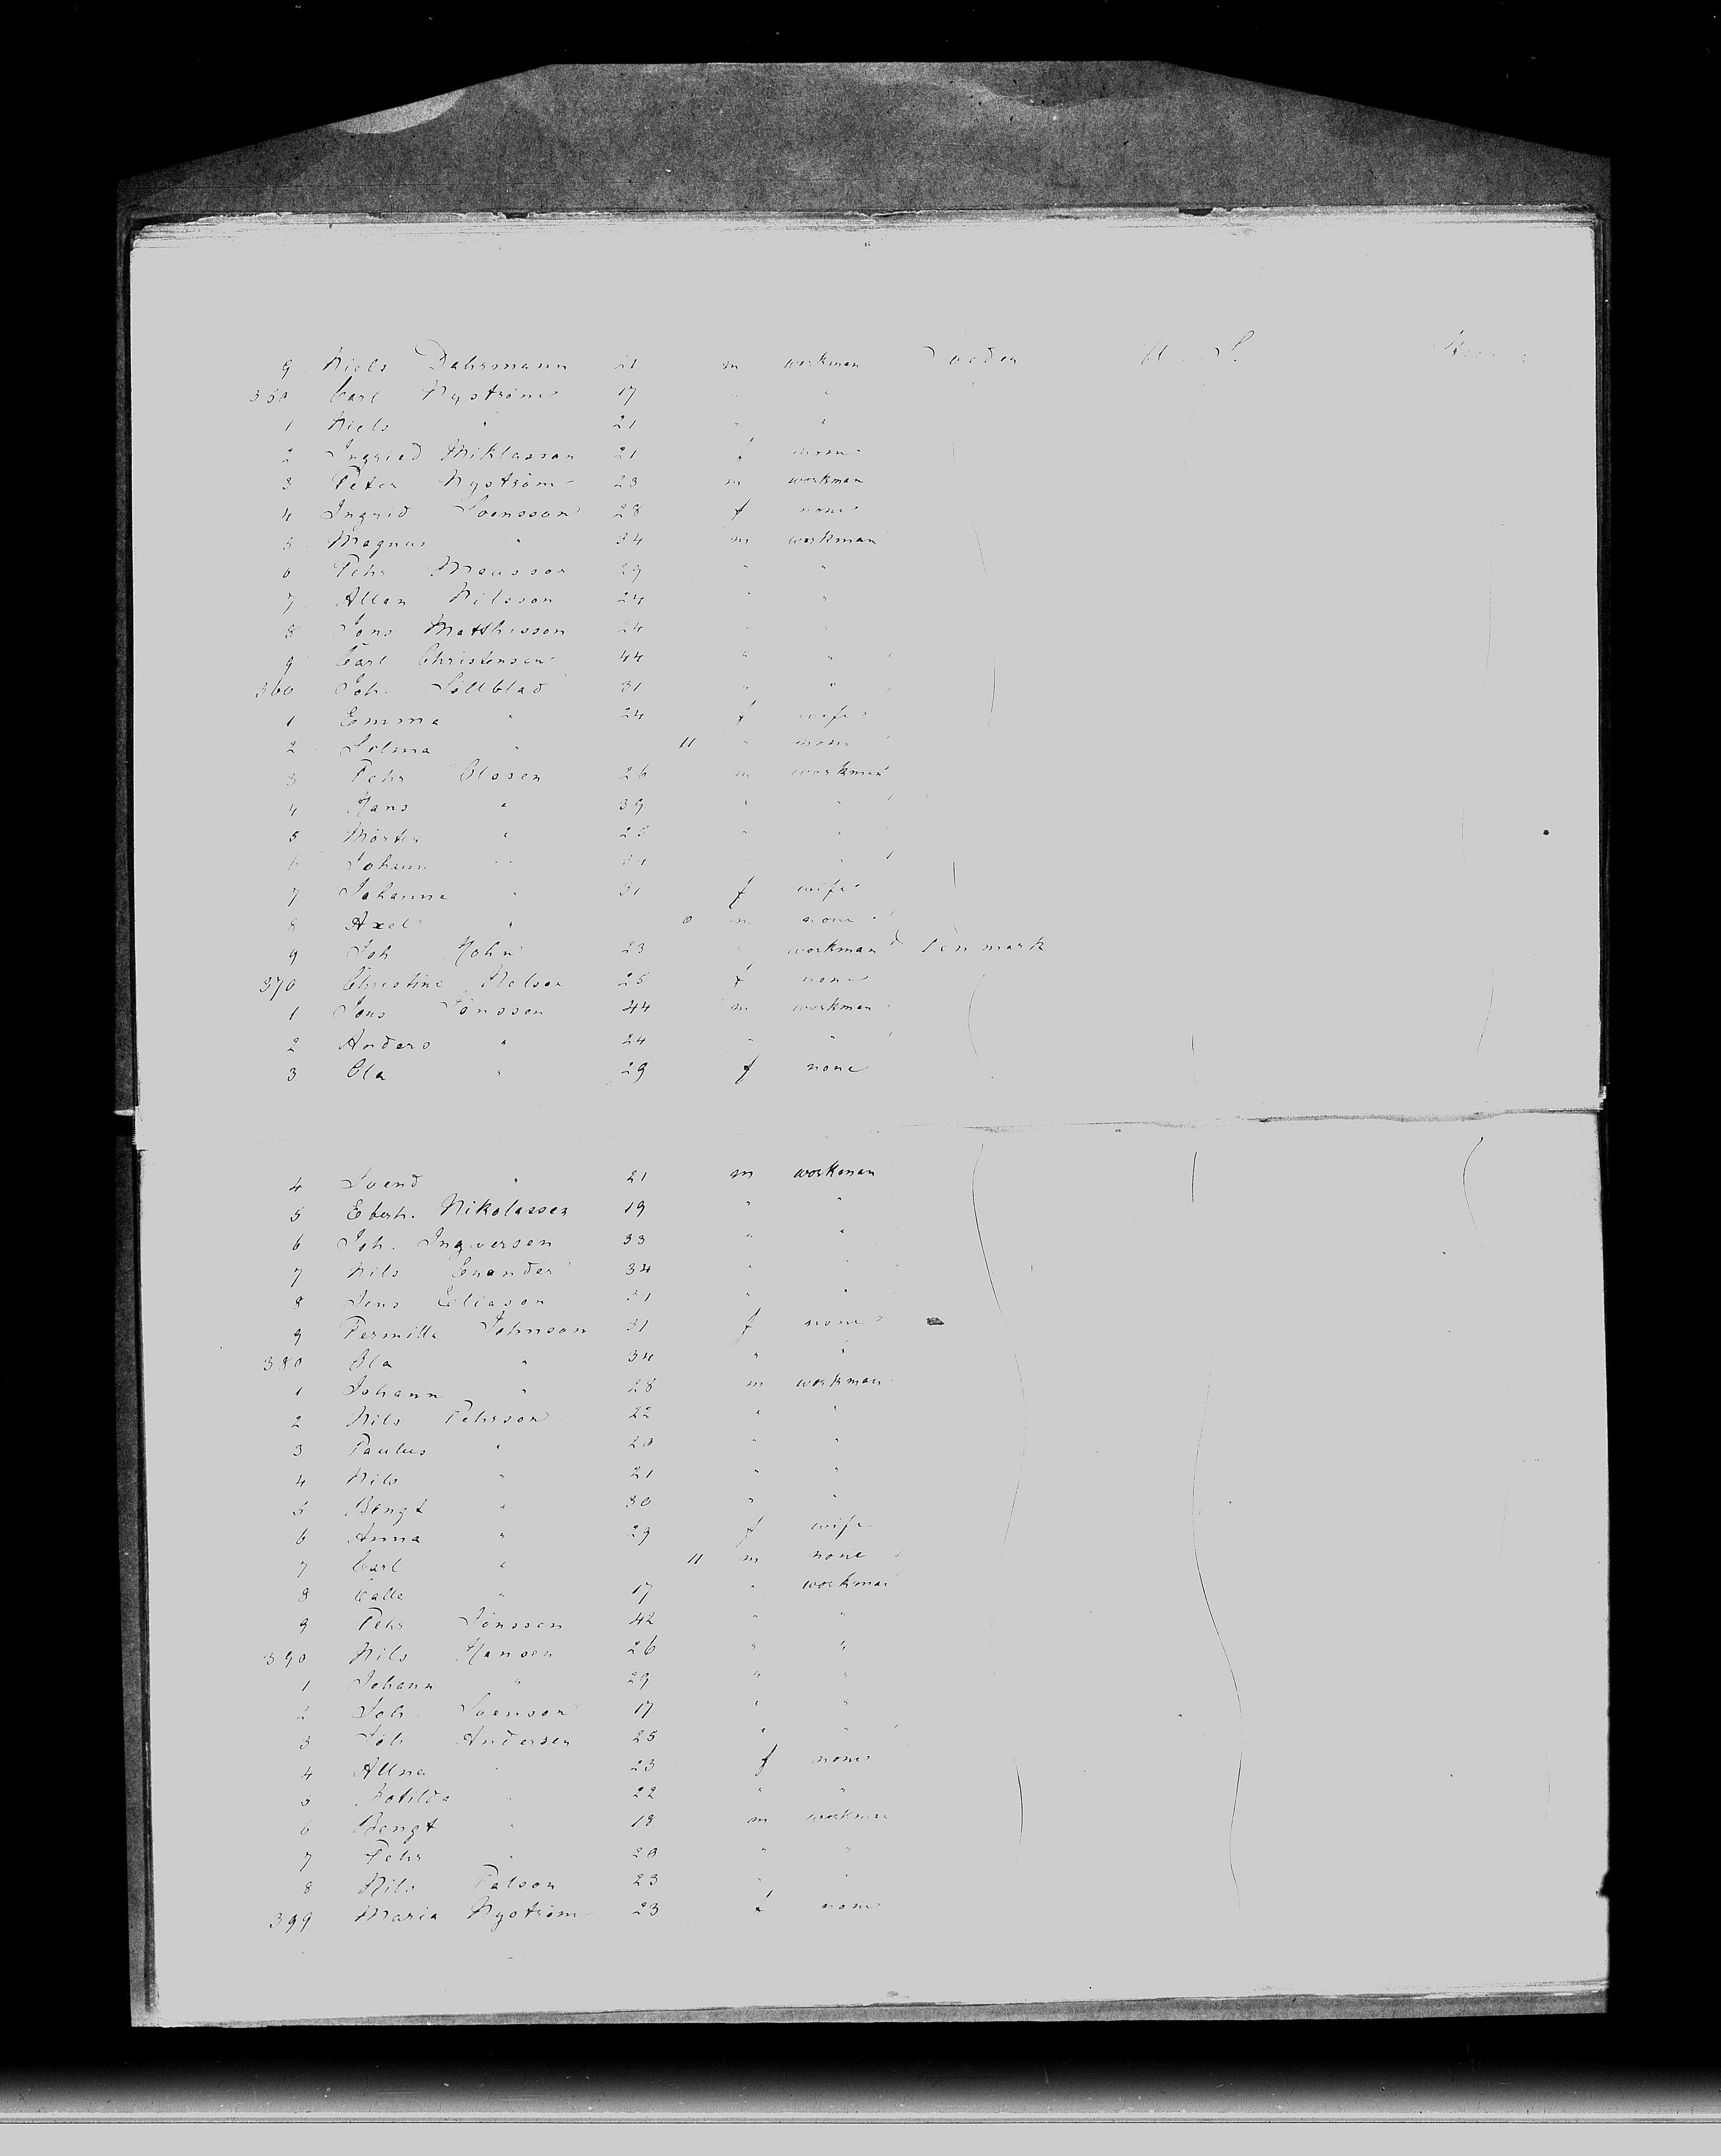 9 Niels Dahrmann 21 m workman U. S.
350 Carl Nyström 17 " "
1 Niels " 21 " "
2 Ingried Miklasson 21 f none
3 Peter Nyström 23 m workman
4 Ingrid Svensson 28 f none
5 Magnus " 34 m workman
6 Pehr Maussor 29 " "
7 Allan Nilsson 24 " "
8 Jons Matthisson 24 " "
9 Carl Christensen 44 " "
360 Joh. Söllblad 31 " "
1 Emma " 24 f wife
2 Selma " 11 " none
3 Pehr Olosen 26 m workman
4 Hans " 39 " "
5 Mörten " 25 " "
6 Johann " 34 " "
7 Johanne " 31 f wife
8 Axel " 0 m none
9 Joh. Hohn 23 " workman Denmark
370 Christine Nelson 25 f none
1 Jons Jönssen 44 m workman
2 Anders " 24 " "
3 Ola " 29 f none
4 Svend " 21 m workman
5 Eberh. Nikolassen 19 " "
6 Joh. Ingversen 33 " "
7 Nils Enander 34 " "
8 Jens Eliason 31 " "
9 Permilla Johnson 31 f none
380 Ola " 34 " "
1 Johann " 28 m workman
2 Nils Pehrson 22 " "
3 Paulus " 20 " "
4 Nils " 21 " "
5 Bengt " 30 " "
6 Anna " 29 f wife
7 Carl " 11 m none
8 Calle " 17 " workman
9 Pehr Jönssen 42 " "
390 Nils Hansen 26 " "
1 Johann " 29 " "
2 Joh. Svenson 17 " "
3 Joh. Andersen 25 " "
4 Allna " 23 f none
5 Botilda " 22 " "
6 Bengt " 18 m workman
7 Pehr " 20 " "
8 Nils Palson 23 " "
399 Maria Nyström 23 f none